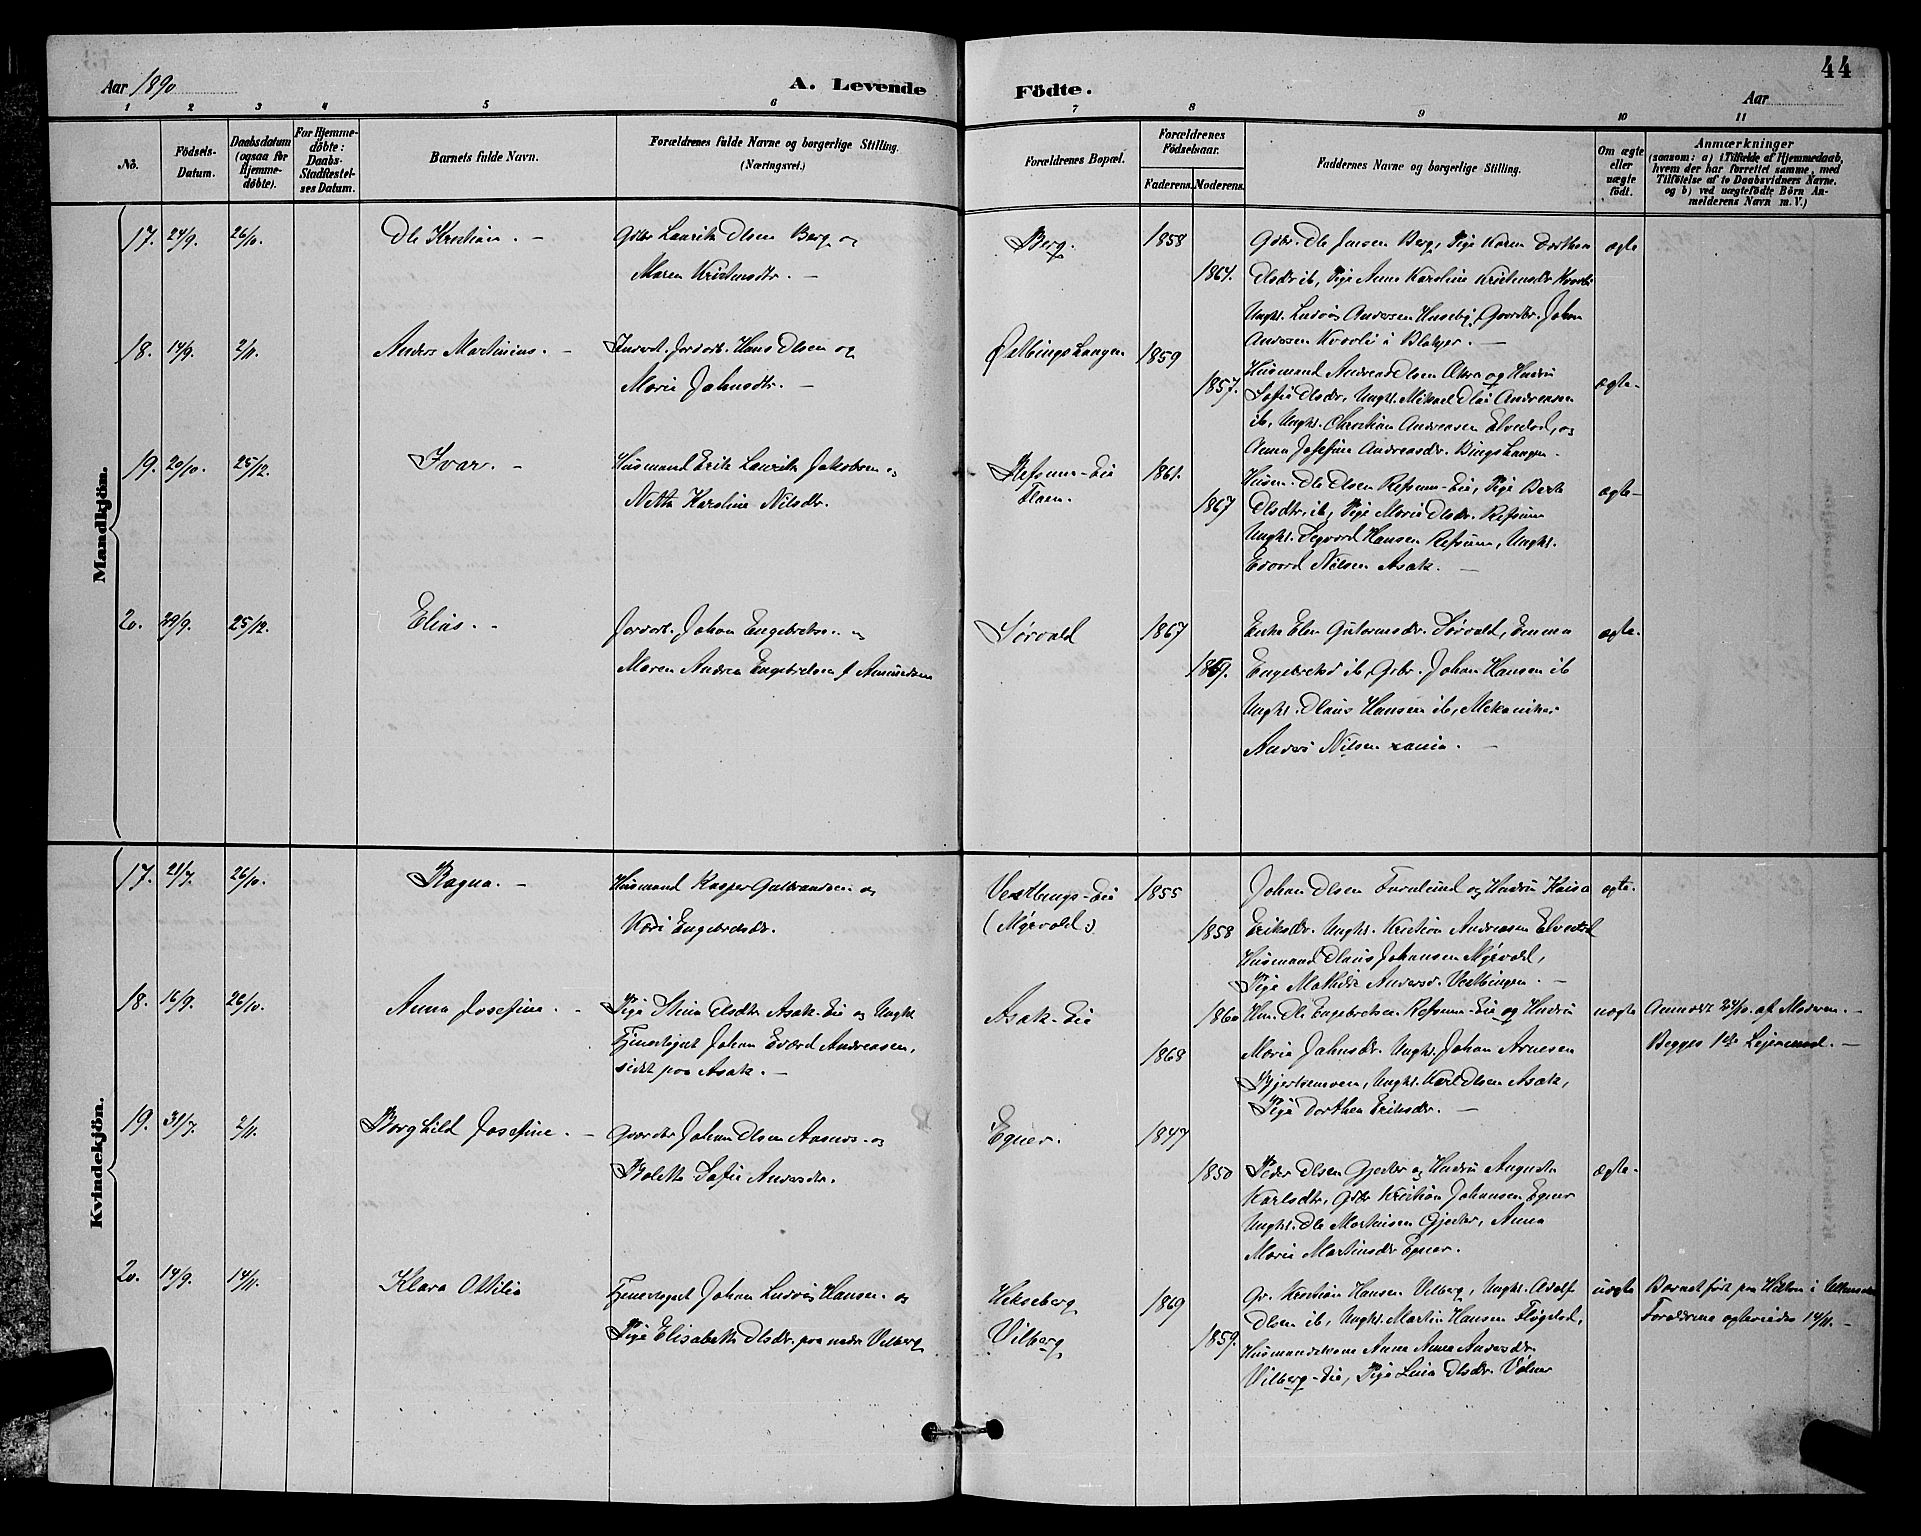 44
Aar 1890
A. Levende Födte.
Aar
1 2 3 4 5 6 7 8 9 10 11
No.
Födsels-
Datum.
Daabsdatum
(ogsaa for
Hjemme-
døbte).
For Hjemme-
döbte:
Daabs-
Stadfæstel-
ses Datum.
Barnets fulde Navn.
Forældrenes fulde Navne og borgerlige Stilling.
(Næringsvei.)
Forældrenes Bopæl.
Forældrenes
Födselsaar.
Faderens. Moderens.
Faddernes Navne og borgerlige Stilling.
Om ægte
eller
uægte
födt.
Anmærkninger
(saasom: a) i Tilfælde af Hjemmedaab,
hvem der har forrettet samme, med
Tilföielse af to Daabsvidners Navne,
og b) ved uægtefödte Börn An-
melderens Navn m. V.)
Mandkjön.
17. 24/9. 26/10. Ole Kristian. -
Gdbr. Laurits Olsen Berg og
Maren Kristensdtr. -
Berg. 1858
1864.
Gdbr. Ole Jensen Berg, Pige Karen Dorthea
Olsdtr ib, Pige Anne Karoline Kristensdr Kvevli
Ungk. Ludvig Andersen Huseby, Gaardbr. Johan
Andersen Kvevli i Blakjer. -
ægte
18. 14/9. 2/11. Anders Martinius. -
Inderst. Jordarb. Hans Olsen og
Marie Johnsdtr. -
Østbingshaugen 1859
1857.
Husmand Andreas Olsen Akra og Hustru
Sofie Olsdr, Ungk. Mikael Olai Andreasen
ib, Ungk. Christian Andreasen Elvestad, og
Anna Josefine Andreasdr. Bingshaugen. -
ægte-
19. 20/10. 25/12. Ivar. -
Husmand Erik Laurits Jakobsen og
Netta Karoline Nilsdr.
Refsum-Eie
1861.
1867
Husm. Ole Olsen Refsum-Eie, Pige Berte
Olsdtr. ib, Pige Marie Olsdr. Refsum
Ungk. Segvard Hansen Refsum, Ungk.
Edvard Nilsen Asak. -
ægte-
20. 29/9. 25/12. Elias. -
Jordarb. Johan Engebretsen og
Maren Andrea Engebretsen f Amundsen
Sørvald 1867
1869.
Enke Elen Gulbrandsdr. Sørvald, Emma
Engebretsd ib, Grbr. Johan Hansen ib
Ungk. Olaus Hansen ib, Mekaniker
Anders Nilsen xania. -
ægte.
Kvindekjön.
17. 21/7. 26/10. Ragna. -
Husmand Kasper Gulbrandsen og
Kari Engebretsdr.
Vestbings-Eie
(Myrvold)
1855
1858
Johan Olsen Furulund og Hustru Kaisa
Eriksdr. Ungk. Kristian Andreasen Elvestad
Husmand Olaus Johansen Myrvold,
Pige Mathilde Andersd. Vestbingen. -
ægte.
18. 16/9. 26/10. Anna Josefine. -
Pige Stina Olsdtr Asak-Eie og Ungk
Tjenestegut Johan Edvard Andreasen,
sidst paa Asak. -
Asak-Eie 1860
1868
Hm. Ole Engebretsen Refsum-Eie og Hustru
Marie Johnsdr. Ungk. Johan Arnesen
Bjerkemoen, Ungk. Karl Olsen Asak,
Pige Dorthea Eriksdr. -
uægte
Anmeldt 24/10. af Moderen. -
Begges 1ste Leiermaal. -
19. 31/7. 2/11. Borghild Josefine. -
Gaardbr Johan Olsen Aasnes og
Bolette Sofie Andersdtr.
Egner. 1847
1850
Peder Olsen Gjester og Hustru Augusta
Karlsdtr, Gdbr Kristian Johansen Egner
Ungk. Ole Mortensen Gjester, Anna
Marie Martinsdr Egner.
ægte-
20. 14/9. 14/11. Klara Ottilia
Tjenestegut Johan Ludvig Hansen og
Pige Elisabeth Olsdr. paa nedre Vilberg
Hekseberg
Vilberg
1869
1859.
Gr. Kristian Hansen Vilberg, Ungk. Adolf
Olsen ib, Ungk. Martin Hansen Fløgstad,
Husmandskone Anne Andersdr
Vilberg-Eie, Pige Lina Olsdr. Vølner
uægte
Barnet født paa
Forældrene ophervedes 14/11. -